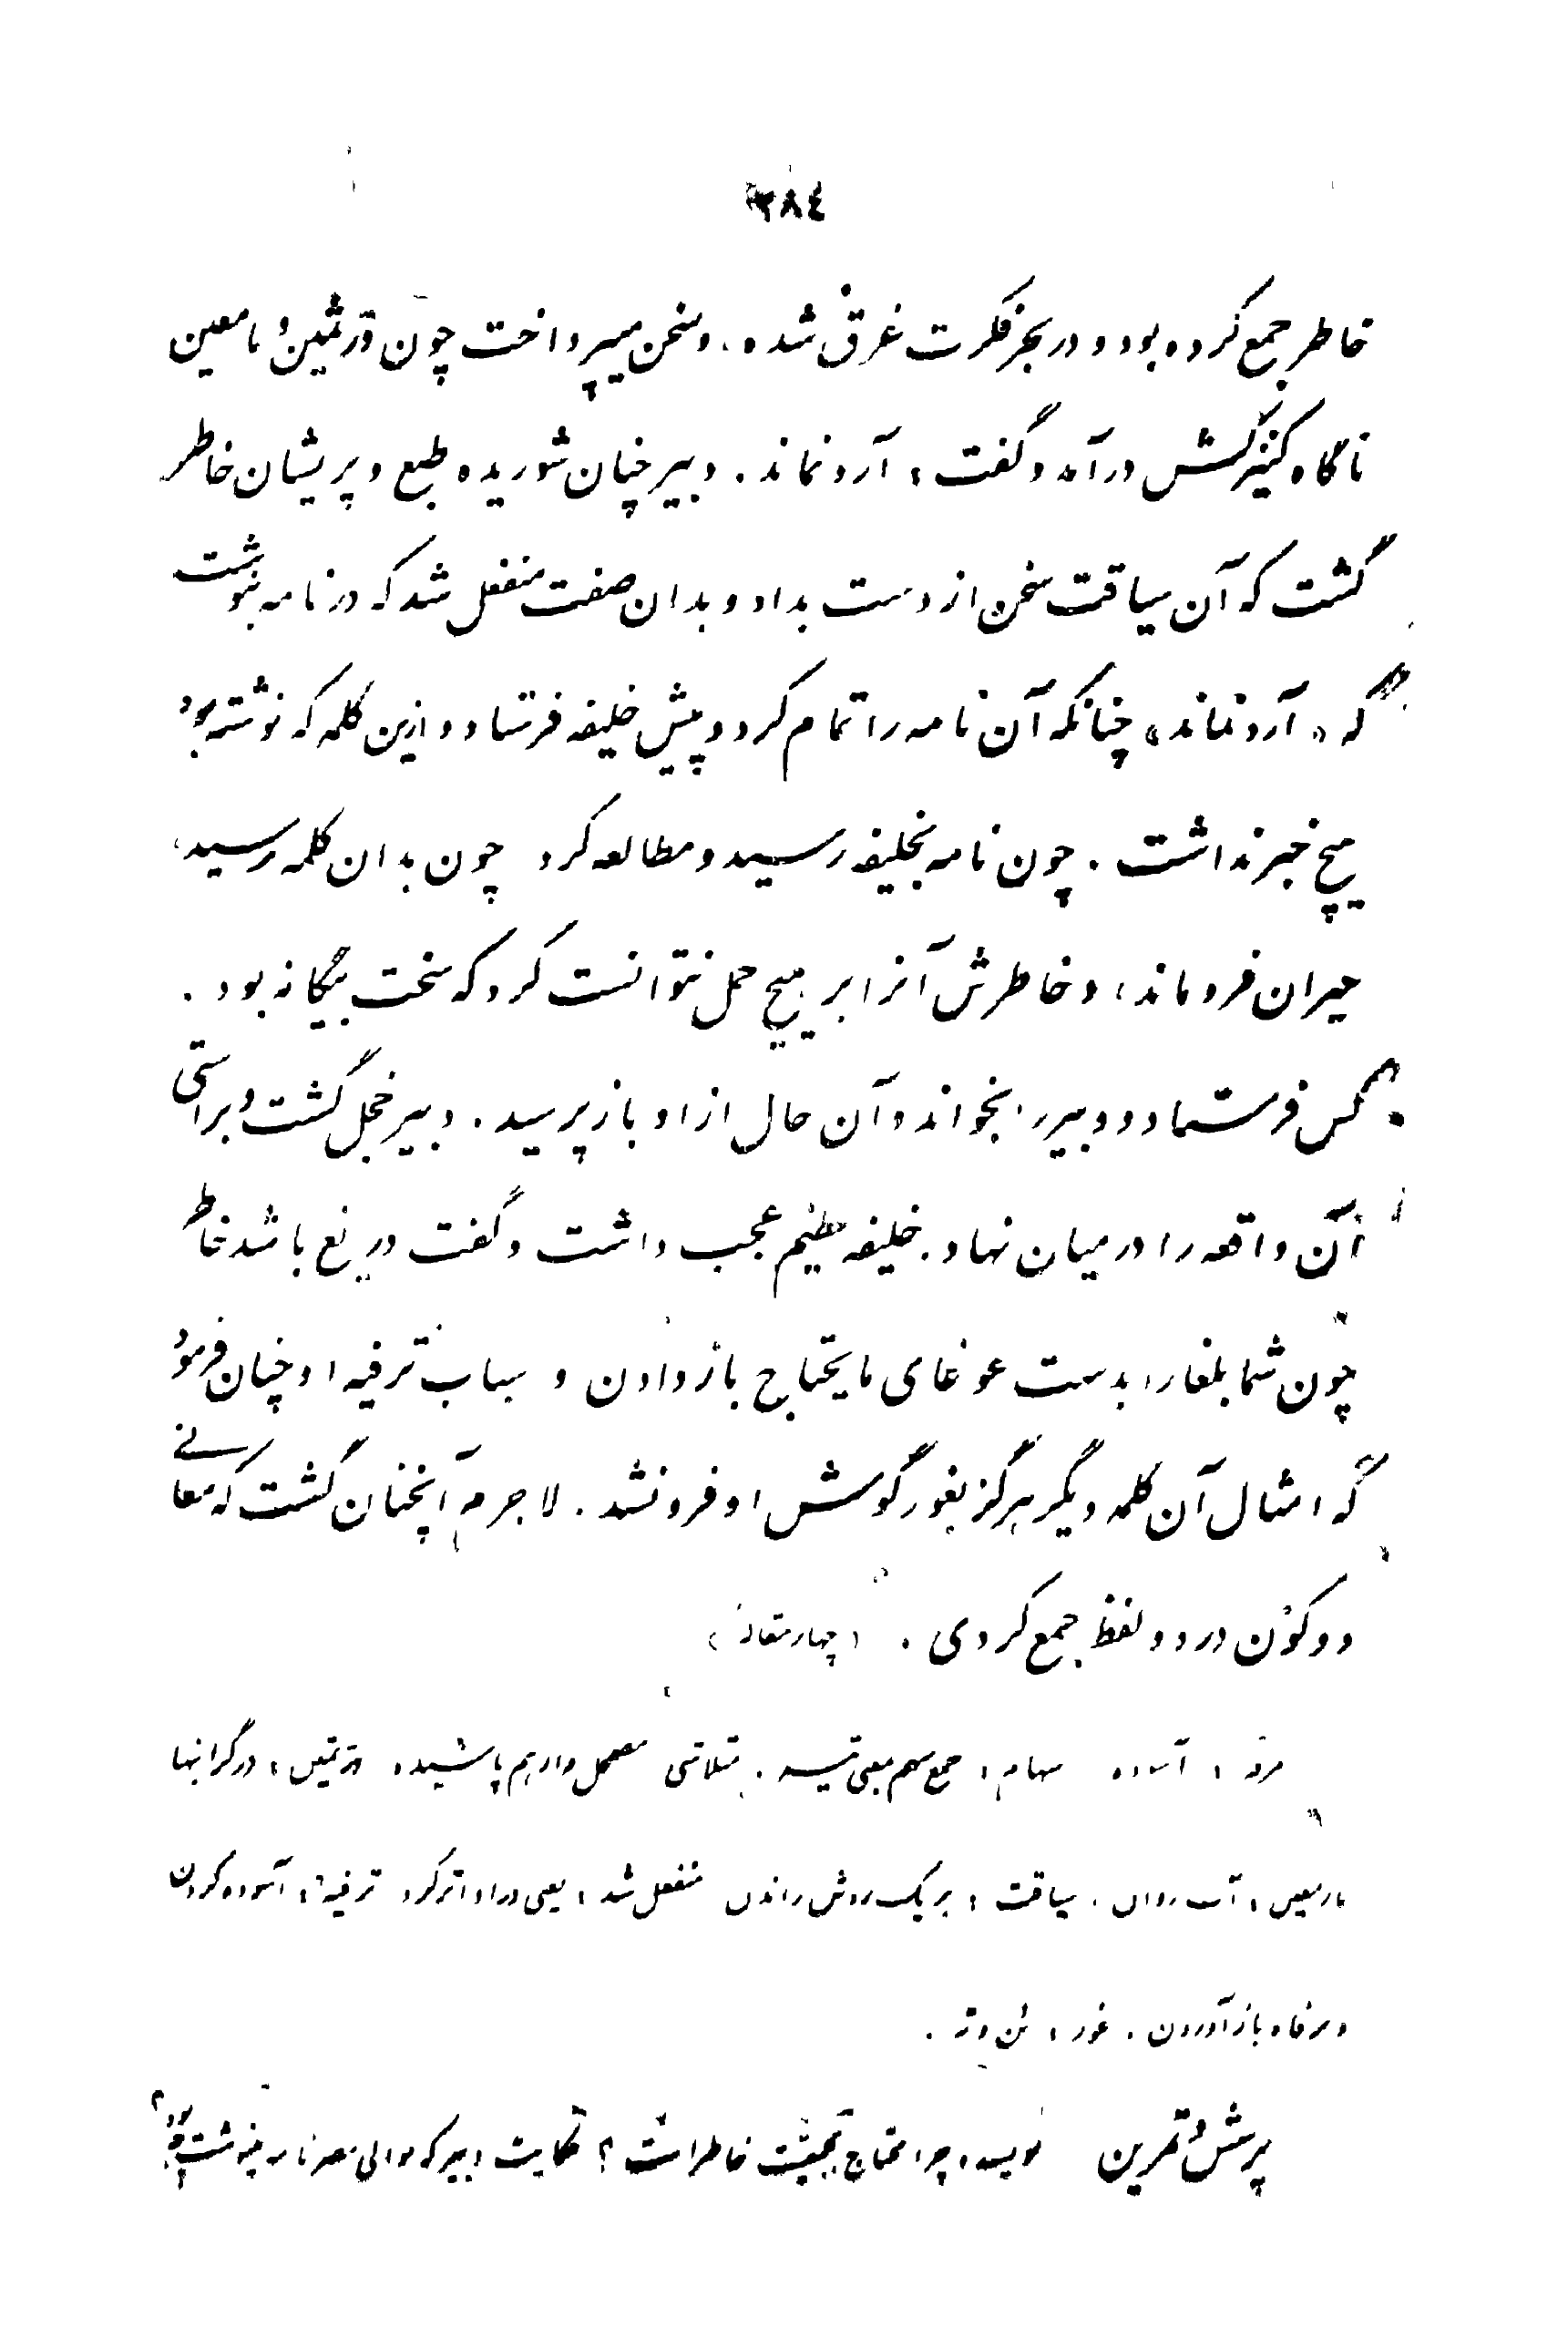 ۲۸۴
خاطر جمع کرده بود و در بحر فکرت غرق شده، و سخن میپرداخت چون در ثمین و ماء معین
ناگاه کنیزکش درآمد و گفت: آرد نماند. دبیر چنان شوریده طبع و پریشان خاطر
گشت که آن سیاقت سخن از دست بداد و بدان صفت منفعل شد که در نامه بنوشت
که «آرد نماند» چنانکه آن نامه را تمام کرد و پیش خلیفه فرستاد و ازین کلمه که نوشته بود
هیچ خبر نداشت. چون نامه بخلیفه رسید و مطالعه کرد چون بدان کلمه رسید،
حیران فروماند، و خاطرش آنرا بر هیچ حمل نتوانست کرد که سخت بیگانه بود.
کس فرستاد و دبیر را بخواند و آن حال از او باز پرسید. دبیر خجل گشت و براستی
آن واقعه را در میان نهاد. خلیفه عظیم عجب داشت و گفت دریغ باشد خاطر
چون شما بلغا را بدست غوغای مایحتاج باز دادن و اسباب ترفیه او چنان فرمود
که امثال آن کلمه دیگر هرگز بغور گوش او فرو نشد. لاجرم آنچنان گشت که معانی
دو کون در دو لفظ جمع کردی. (چهار مقاله)
مرفه: آسوده سهام: جمع سهم بمعنی تیر. متلاشی مضمحل و از هم پاشیده در ثمین: در گرانبها
ماء معین: آب روان. سیاقت: بر یک روش راندن منفعل شد: یعنی در او اثر کرد ترفیه: آسوده کردن
و برفاه باز آوردن. غور: بن و ته.
پرسش و تمرین نویسنده چرا محتاج بجمعیت خاطر است؟ حکایت دبیر که بوالی مصر نامه مینوشت چه بود؟